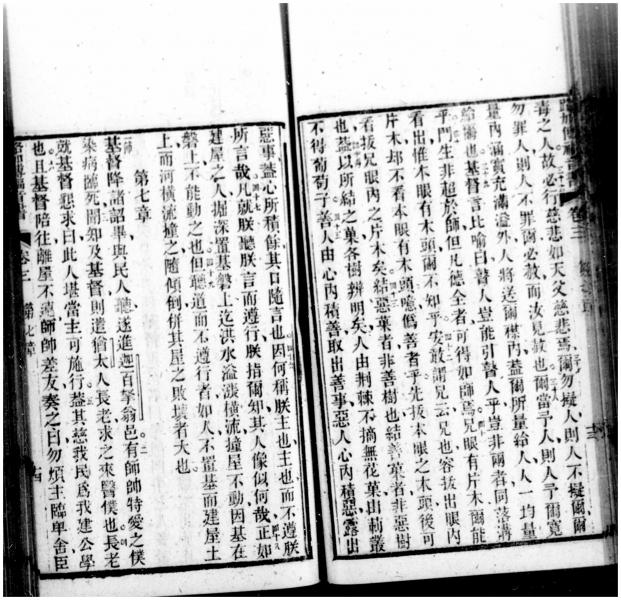 毒之人故必行慈悲如天父慈悲焉爾勿擬人則人不擬爾爾
勿罪人則人不罪爾必赦而汝見赦也爾當予人則人予爾寬
量內滿實充滿溢外人將送爾襟內蓋爾所量給人人一均量
給爾也基督言比喻曰瞽人豈能引瞽人乎豈非兩者同落溝
乎門生非超於師但凡德全者可得如師焉兄眼有片木爾能
看出惟本眼有木頭爾不知乎安敢謂兄云兄也容拔出眼內
片木却不看本眼有木頭噫僞善者乎先拔本眼之木頭後可
看拔兄眼內之片木矣結惡菓者非善樹也結善菓者非惡樹
也蓋以所結之菓各樹辨明矣人由荆棘不摘無花菓由莿叢
不得葡萄子善人由心內積善取出善事惡人心內積惡露出
惡事蓋心所積餘其口隨言也因何稱朕主也主也而不遵朕
所言哉凡就朕聽朕言而遵行朕指爾知其人像似何哉正如
建屋之人掘深置基磐上迄洪水溢漲橫流撞屋不動因基在
磐上不能動之也但聽道而不遵行者如人不置基而建屋土
上而河橫流撞之隨傾倒併其屋之敗壞者大也
第七章
基督降諸詔畢與民人聽遂進迦百拏翁邑有師帥特愛之僕
染病臨死聞知及基督則遣猶太人長老求之來醫僕也長老
就基督懇求曰此人堪當主可施行蓋其戀我民爲我建公學
也且基督陪往離屋不遠師帥差友奏之曰勿煩主臨卑舍臣